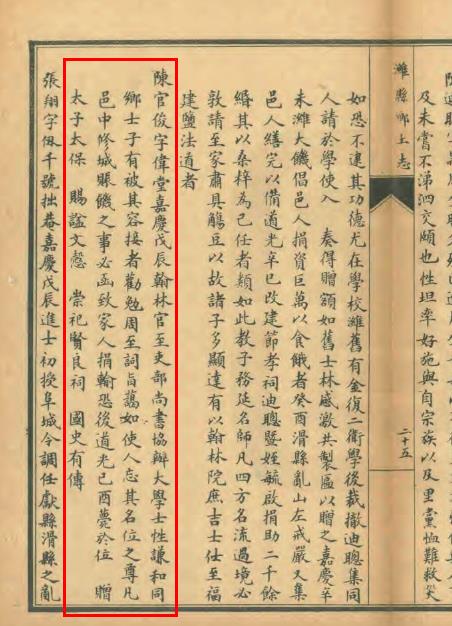 及未嘗不涕泗交頤也性坦率好施與自宗族以及里黨恤難救災
濰縣鄉土志
二十五
如恐不逮其功德尤在學校濰舊有金復二衛學後裁撤迪聰集同
人請於學使入 奏得贈額如舊士林感激共製匾以贈之嘉慶辛
未濰大饑倡邑人捐資巨萬以食餓者癸酉滑縣亂山左戒嚴又集
邑人繕完以備道光辛巳改建節孝祠迪聰暨姪毓啟捐助二千餘
緡其以桑梓為己任者類如此教子務延名師凡四方名流過境必
敦請至家肅具觴豆以故諸子多顯達有以翰林院庶吉士仕至福
建鹽法道者
陳官俊字偉堂嘉慶戊辰翰林官至吏部尚書協辦大學士性謙和同
鄉士子有被其容接者勸勉周至詞旨藹如使人忘其名位之尊凡
邑中修城賑饑之事必函致家人捐輸恐後道光己酉薨於位 贈
太子太保 賜諡文慤 崇祀賢良祠 國史有傳
張翔字伋千號拙巷嘉慶戊辰進士初授阜城令調任獻縣滑縣之亂